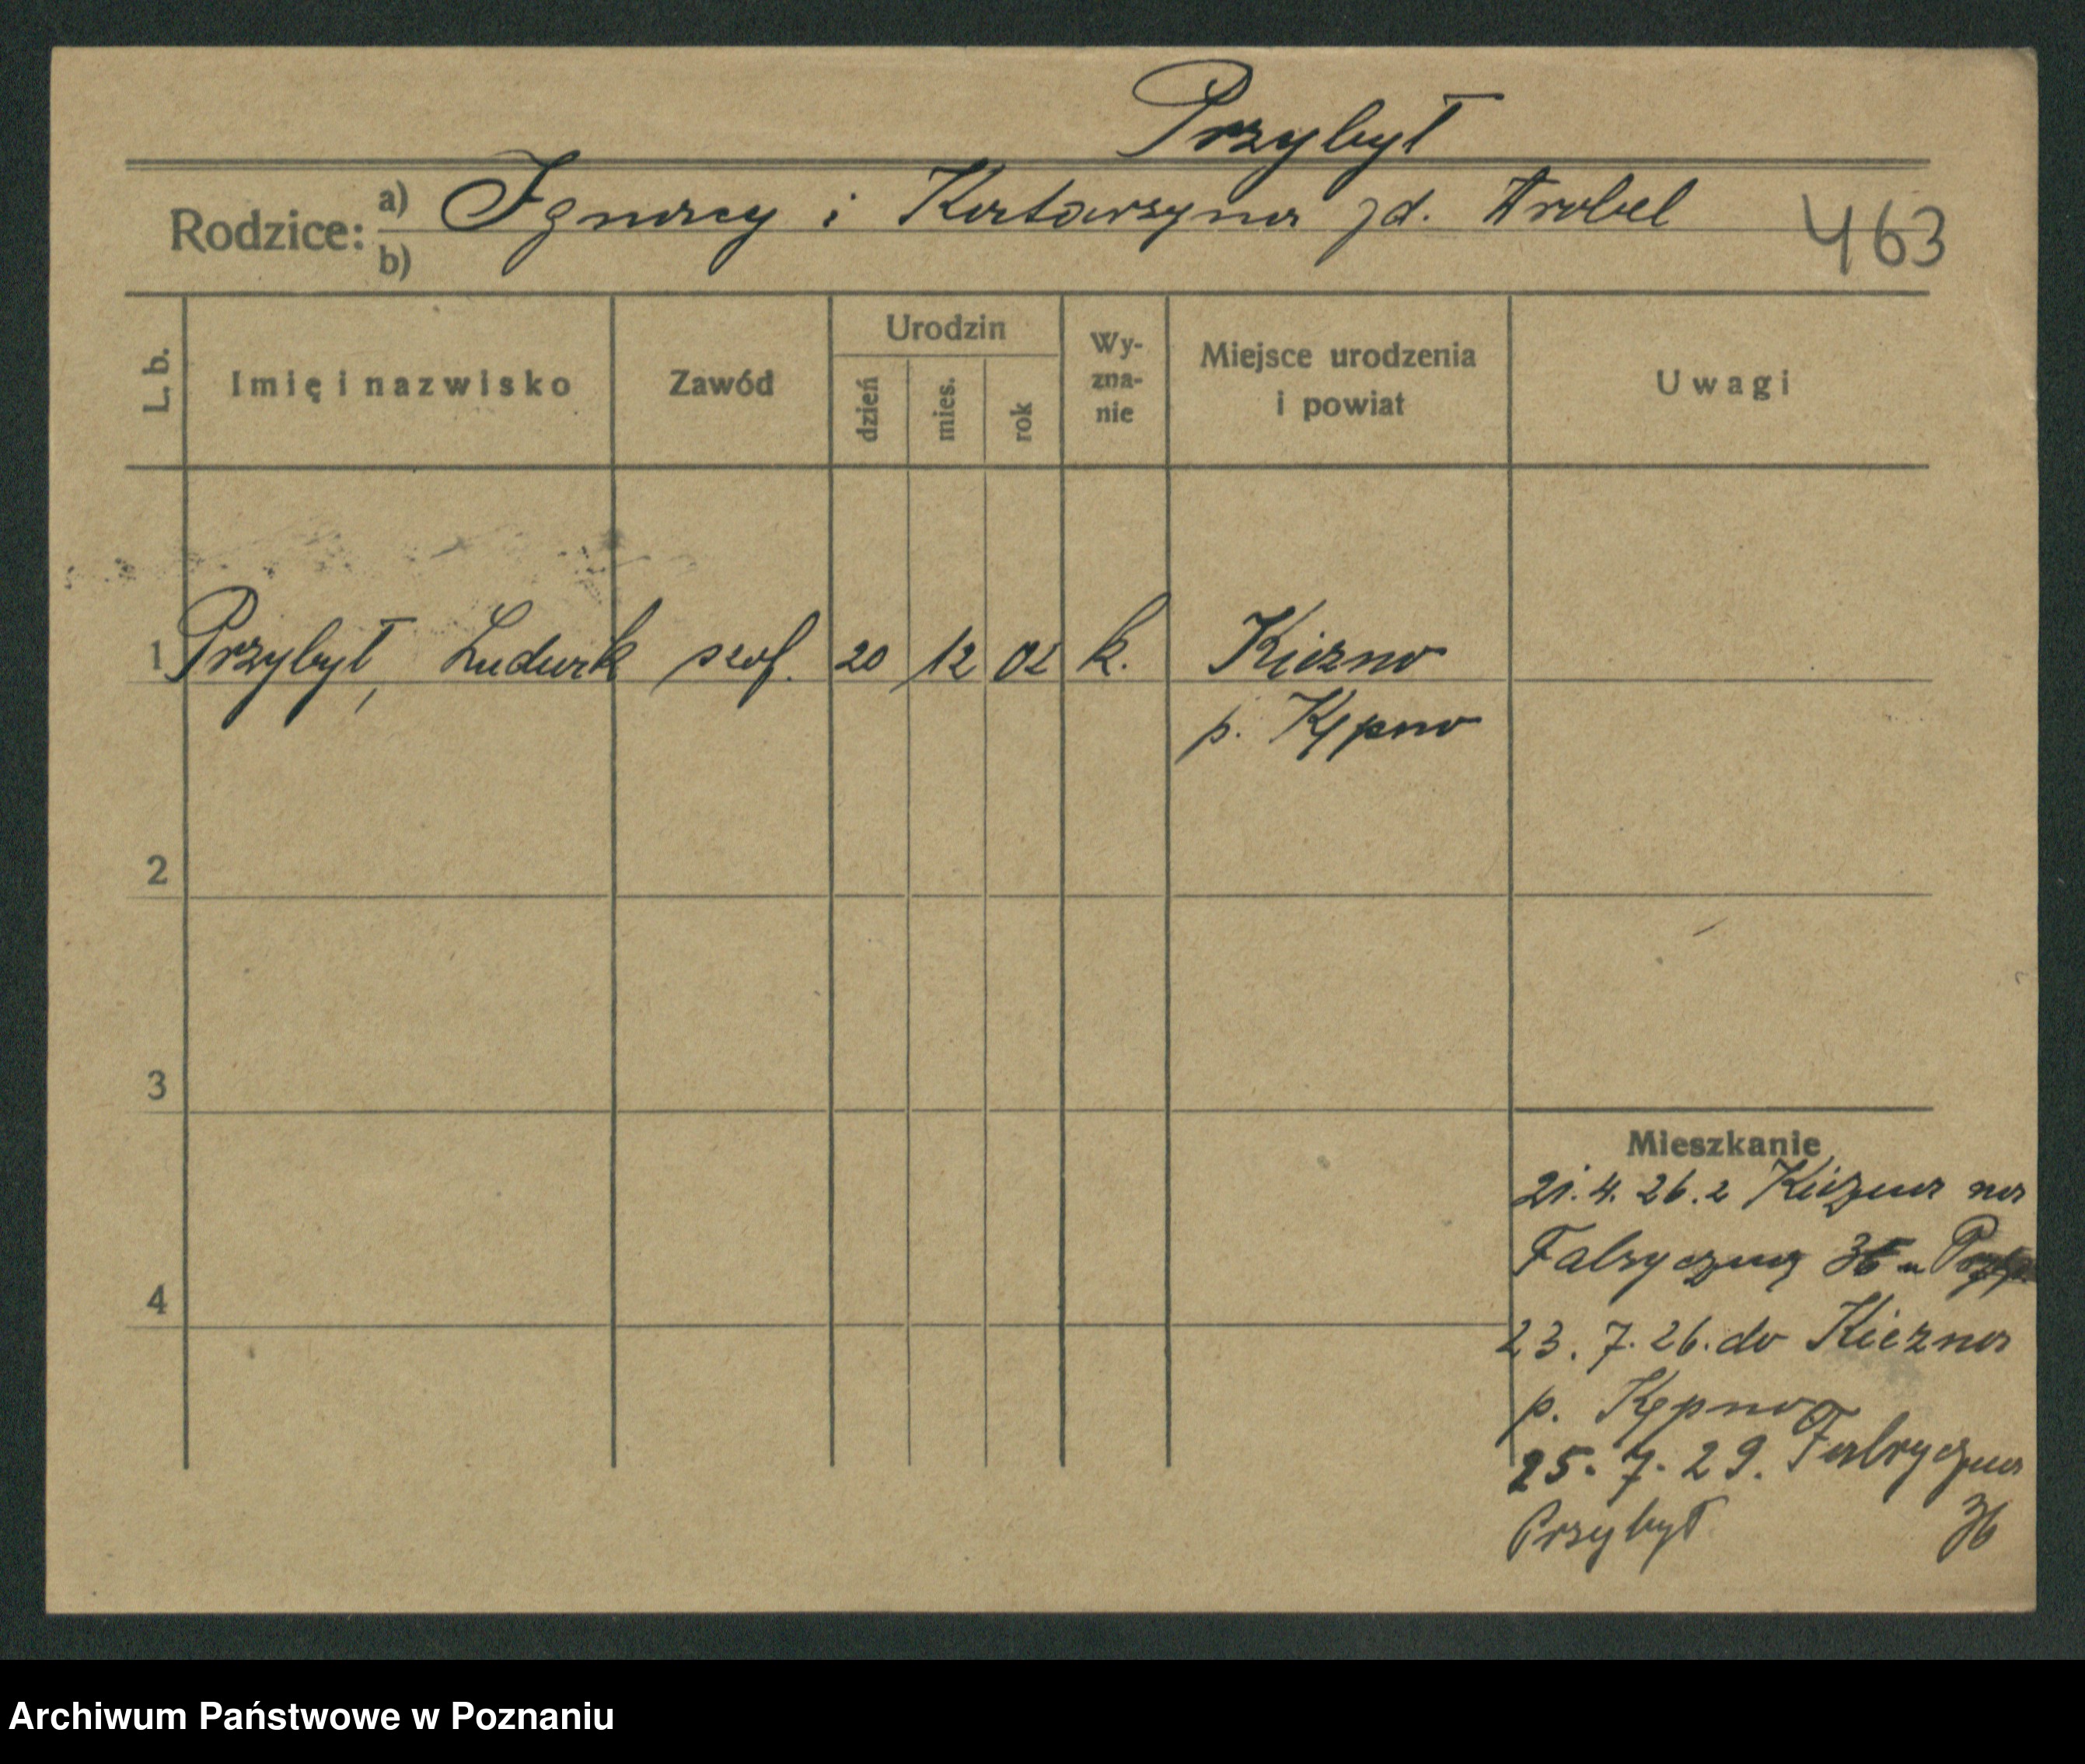 Przybył
Rodzice: a) Ignacy i Katarzyna zd. Wrobel 463
b)
L. b. Imię i nazwisko Zawód Urodzin dzień mies. rok Wy-zna-nie Miejsce urodzenia i powiat Uwagi
1 Przybył, Ludwik szof. 20 12 02 k. Kierzno
p. Kępno
2
3
Mieszkanie
21. 4. 26. z
Fabryczna 36 u
4
23. 7. 26. do
p. Kępno
25. 7. 29. Fabryczna
Przybył 36
Archiwum Państwowe w Poznaniu